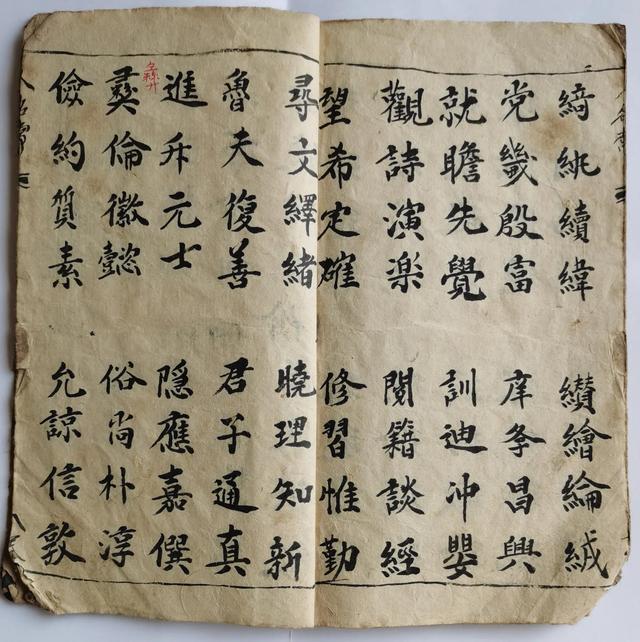 綺絩續緯 纘繪綸絨
党畿殷富 庠昌興
就瞻先覺 訓迪冲嬰
觀詩演楽 閱籍談經
望希定確 修習惟勤
尋文繹緒 曉理知新
魯夫復善 君子通真
進升元士 隠應嘉僎
彛倫徽懿 俗尚朴淳
儉約質素 允諒信敦